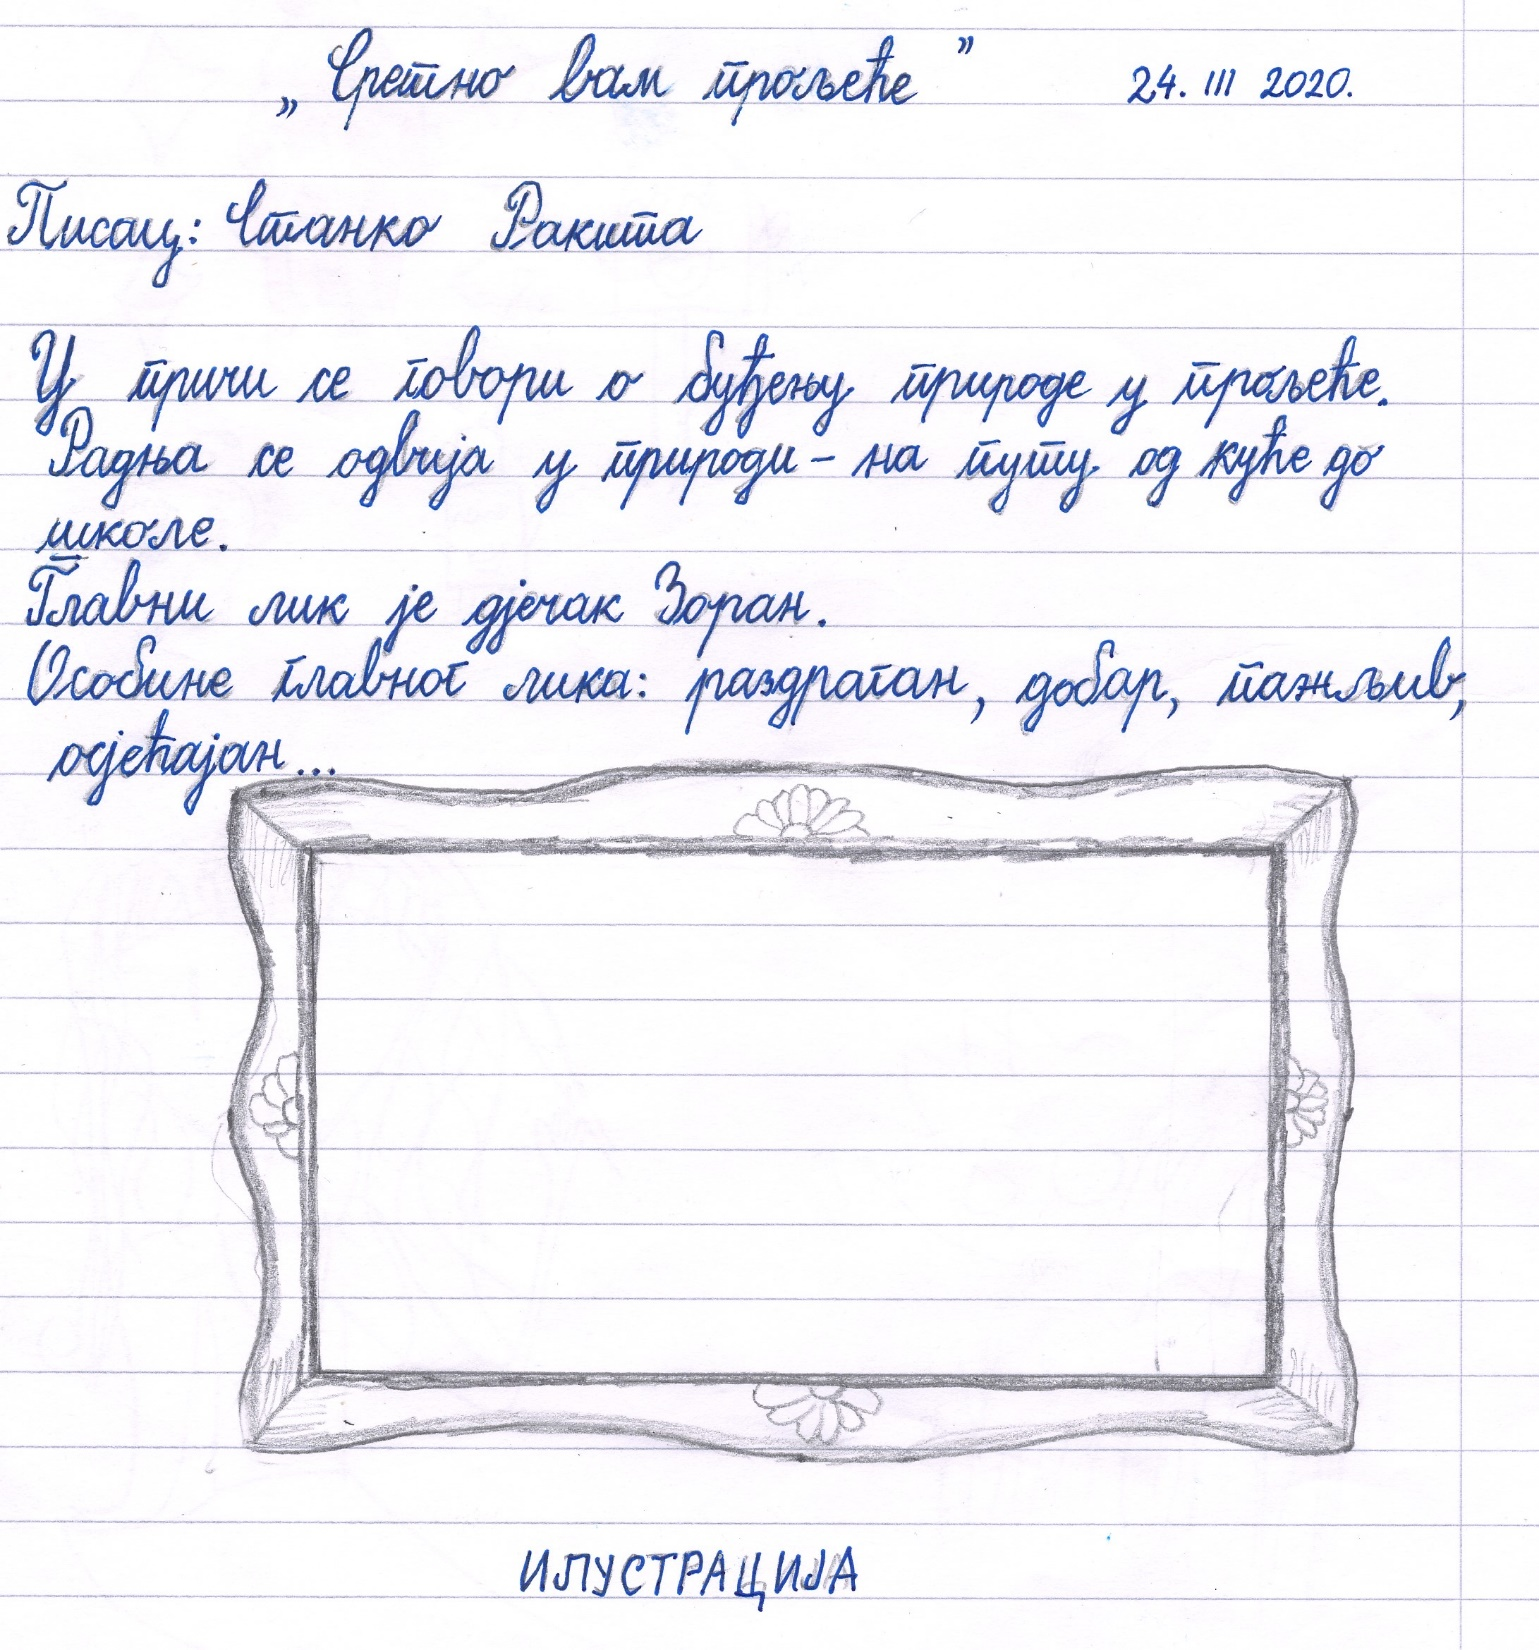 „Сретно вам прољеће” 24. III 2020.
Писац: Станко Ракита
У причи се говори о буђењу природе у прољеће.
Радња се одвија у природи - на путу од куће до
школе.
Главни лик је дјечак Зоран.
Особине главног лика: раздраган, добар, пажљив,
осјећајан...
ИЛУСТРАЦИЈА